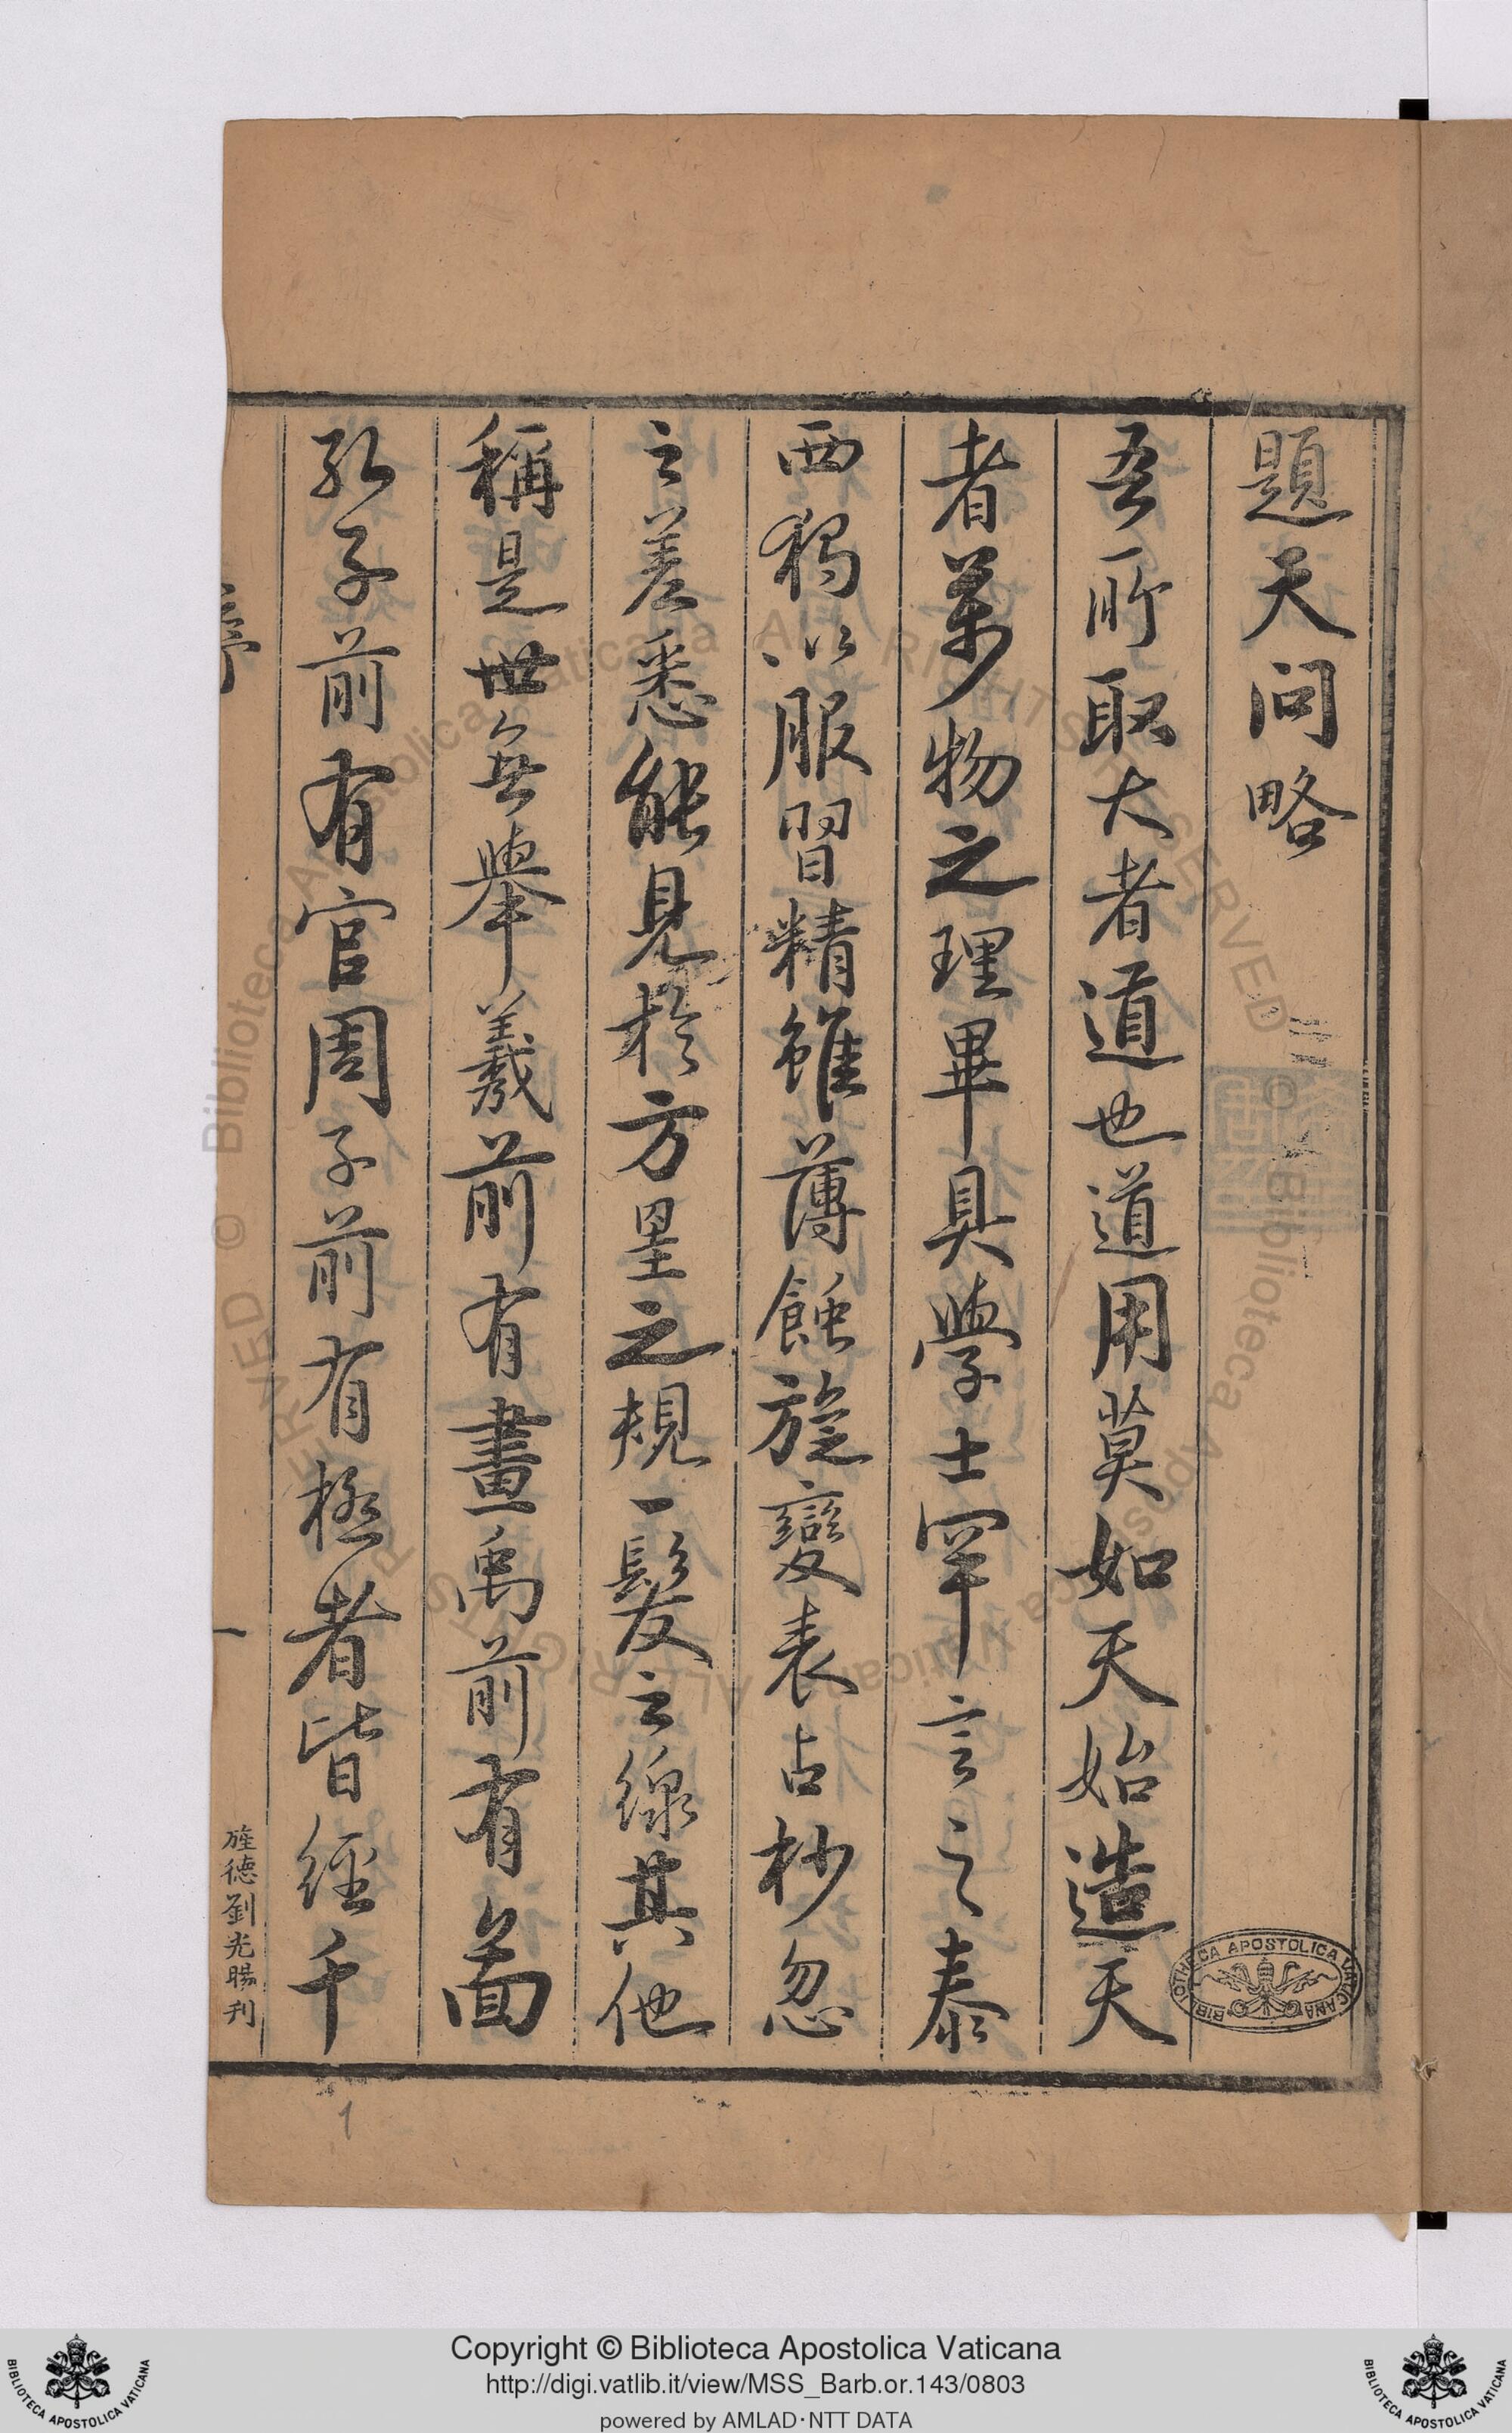 題天問略
吾所取大者道也道用莫如天始造天
者萬物之理畢具學士罕言之泰
西獨以服習精雖薄蝕旋變表占杪忽
之差悉能見於方罫之規一髮之線其他
稱是世無舉羲前有畫禹前有
孔子前有官周子前有極者皆經千
序
一
旌德劉光暘刊
1
Copyright © Biblioteca Apostolica Vaticana
http://digi.vatlib.it/view/MSS_Barb.or.143/0803
powered by AMLAD·NTT DATA
BIBLIOTECA APOSTOLICA VATICANA
BIBLIOTECA APOSTOLICA VATICANA
BIBLIOTHECA APOSTOLICA VATICANA
© Biblioteca Apostolica Vaticana ALL RIGHTS RESERVED